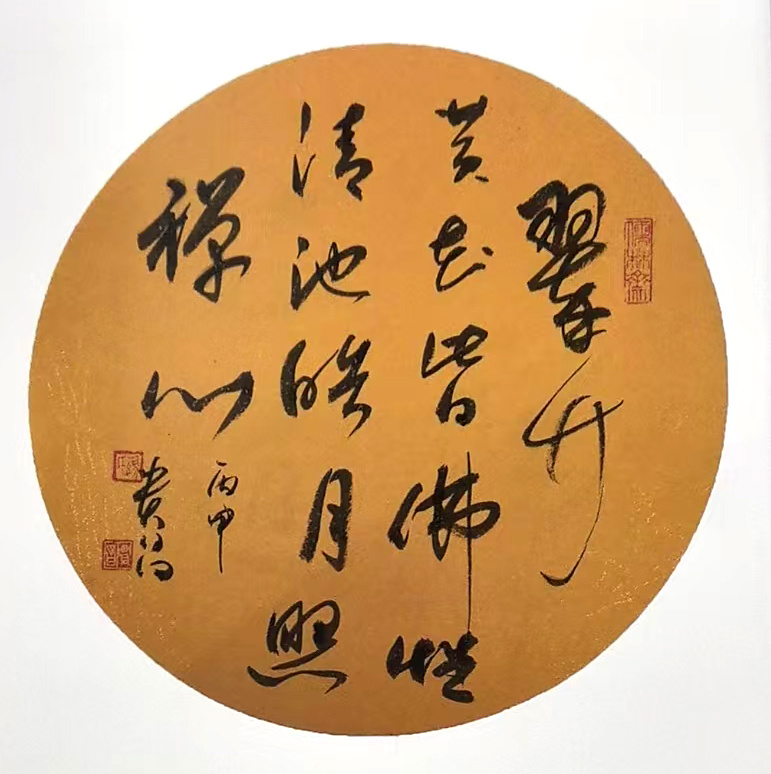 翠竹
黄花皆佛性
清池皓月照
禅心
丙申